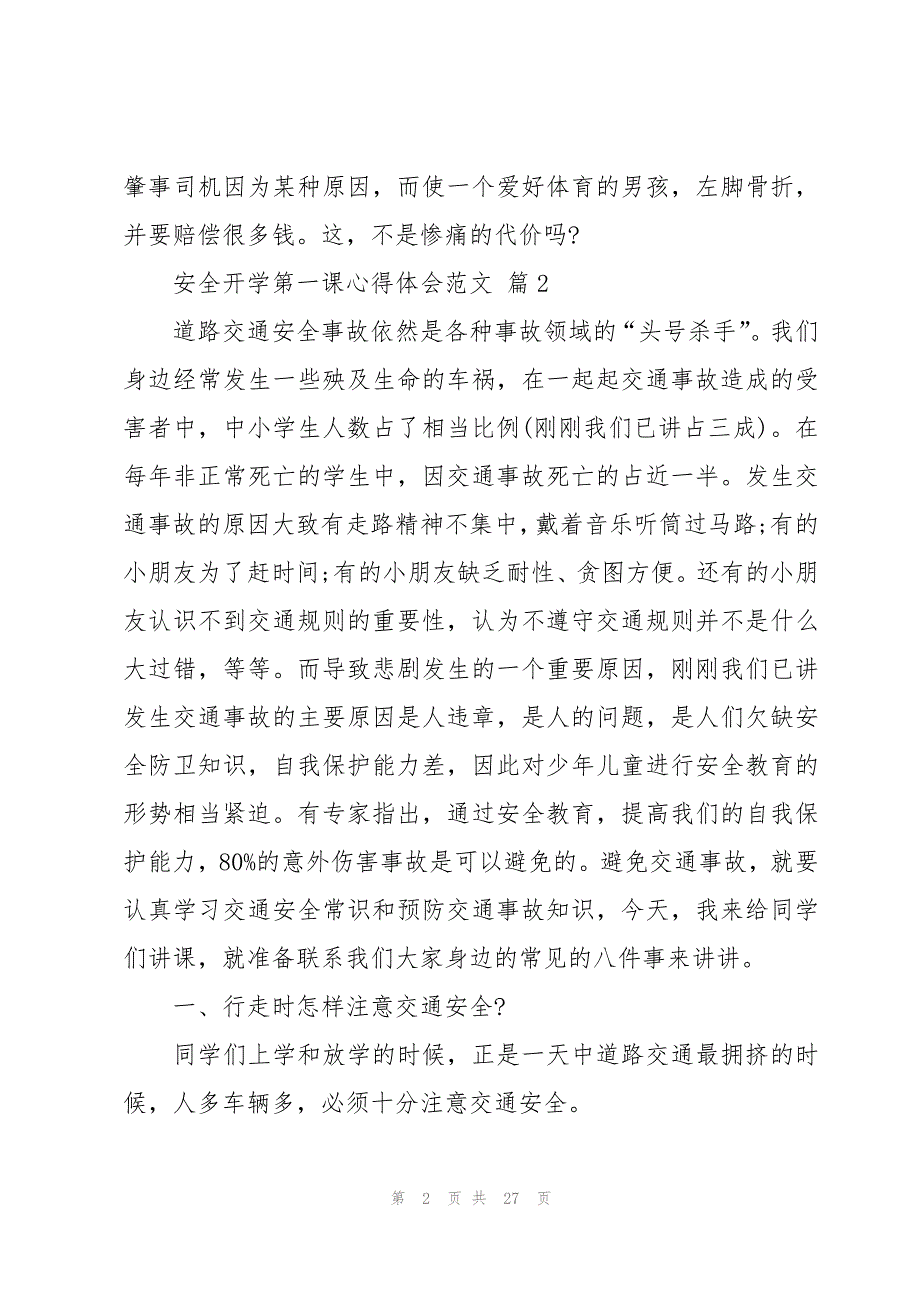 肇事司机因为某种原因，而使一个爱好体育的男孩，左脚骨折，
并要赔偿很多钱。这，不是惨痛的代价吗?
安全开学第一课心得体会范文 篇2
道路交通安全事故依然是各种事故领域的“头号杀手”。我们
身边经常发生一些殃及生命的车祸，在一起起交通事故造成的受
害者中，中小学生人数占了相当比例(刚刚我们已讲占三成)。在
每年非正常死亡的学生中，因交通事故死亡的占近一半。发生交
通事故的原因大致有走路精神不集中，戴着音乐听筒过马路;有的
小朋友为了赶时间;有的小朋友缺乏耐性、贪图方便。还有的小朋
友认识不到交通规则的重要性，认为不遵守交通规则并不是什么
大过错，等等。而导致悲剧发生的一个重要原因，刚刚我们已讲
发生交通事故的主要原因是人违章，是人的问题，是人们欠缺安
全防卫知识，自我保护能力差，因此对少年儿童进行安全教育的
形势相当紧迫。有专家指出，通过安全教育，提高我们的自我保
护能力，80%的意外伤害事故是可以避免的。避免交通事故，就要
认真学习交通安全常识和预防交通事故知识，今天，我来给同学
们讲课，就准备联系我们大家身边的常见的八件事来讲讲。
一、行走时怎样注意交通安全?
同学们上学和放学的时候，正是一天中道路交通最拥挤的时
候，人多车辆多，必须十分注意交通安全。
第 2 页 共 27 页